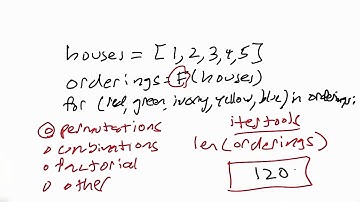 houses = [1,2,3,4,5]
orderings = F(houses)
for (red, green, ivory, yellow, blue) in orderings:
permutations
combinations
factorial
other
itertools
len(orderings)
120